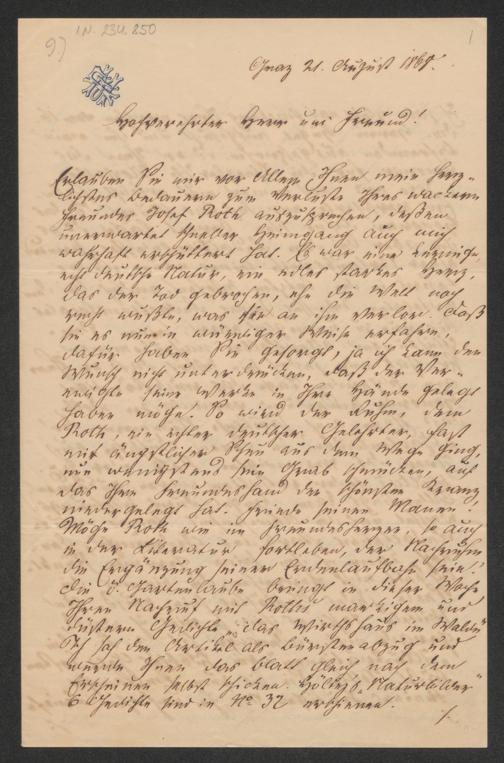 I.N. 234.250
9.)
1
Graz 21. August 1869.
Hochverehrter Herr und Freund!
Erlauben Sie mir vor Allem, Ihnen mein herz-
lichstes Bedauern zum Verluste Ihres wackern
Freundes Josef Roth auszusprechen, dessen
unerwartet schneller Heimgang auch mich
wahrhaft erschüttert hat. Es war eine kernige,
echt deutsche Natur, ein edles starkes Herz,
das der Tod gebrochen, ehe die Welt noch
recht wußte, was sie an ihm verlor. Daß
sie es nun in würdiger Weise erfahre,
dafür haben Sie gesorgt, ja ich kann den
Wunsch nicht unterdrücken, daß der Ver-
ewigte seine Werke in Ihre Hände gelegt
haben möge. So wird der Ruhm, dem
Roth, ein echter deutscher Gelehrter, fast
mit ängstlicher Scheu aus dem Wege ging,
nun wenigstens sein Grab schmücken, auf
das Ihre Freundeshand den schönsten Kranz
niedergelegt hat. Friede seinen Manen!
Möge Roth wie im Freundesherzen, so auch
in der Literatur fortleben, der Nachruhm
die Ergänzung seiner Erdenlaufbahn sein!
Die ö. Gartenlaube bringt in dieser Woche
Ihren Nachruf mit Roths markigem und
düstern Gedichte „das Wirthshaus im Walde“
Ich sah den Artikel als Bürstenabzug und
werde Ihnen das Blatt gleich nach dem
Erscheinen selbst schicken. Höltys „Naturbilder“
6 Gedichte sind in No 32 erschienen.